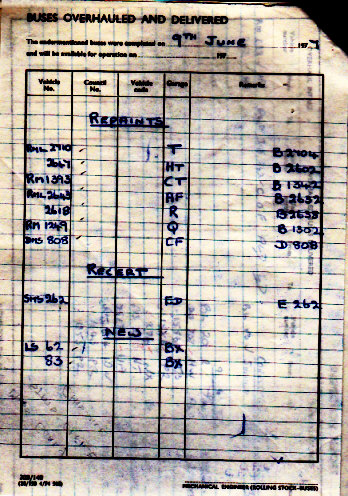 BUSES OVERHAULED AND DELIVERED
The undermentioned buses were completed on 9TH JUNE 197
and will be available for operation on 197
Vehicle No. Council No. Vehicle code Garage Remarks
REPAINTS
RML 2710 T B 2704
2667 HT B 2602
RM 1393 CT B 1342
RML 2643 AF B 2632
2618 R B 2638
RM 1249 Q B 1302
DMS 808 CF D 808
RECERT
SMS 262 ED E 262
NEW
LS 62 BX
83 BX
MECHANICAL ENGINEER (ROLLING STOCK—BUSES)